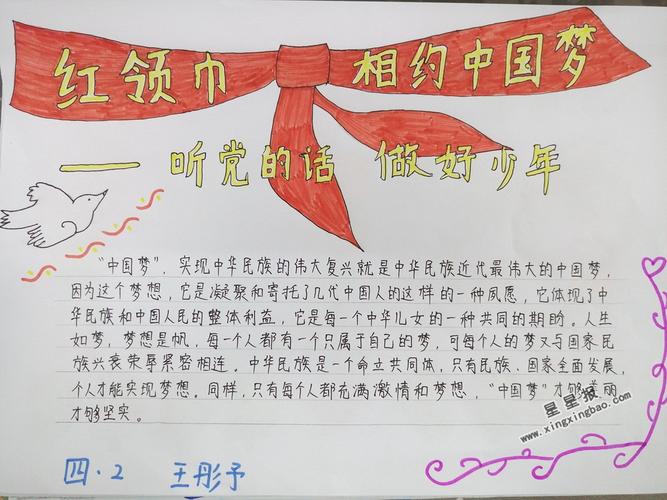 红领巾 相约中国梦
—— 听党的话 做好少年
“中国梦”，实现中华民族的伟大复兴就是中华民族近代最伟大的中国梦，
因为这个梦想，它是凝聚和寄托了几代中国人的这样的一种夙愿，它体现了中
华民族和中国人民的整体利益，它是每一个中华儿女的一种共同的期盼。人生
如梦，梦想是帆，每一个人都有一个只属于自己的梦，可每个人的梦又与国家民
族兴衰荣辱紧密相连。中华民族是一个命立共同体，只有民族、国家全面发展，
个人才能实现梦想。同样，只有每个人都充满激情和梦想，“中国梦”才够美丽
才够坚实。
星星报
www.xingxingbao.com
四·2 王彤予